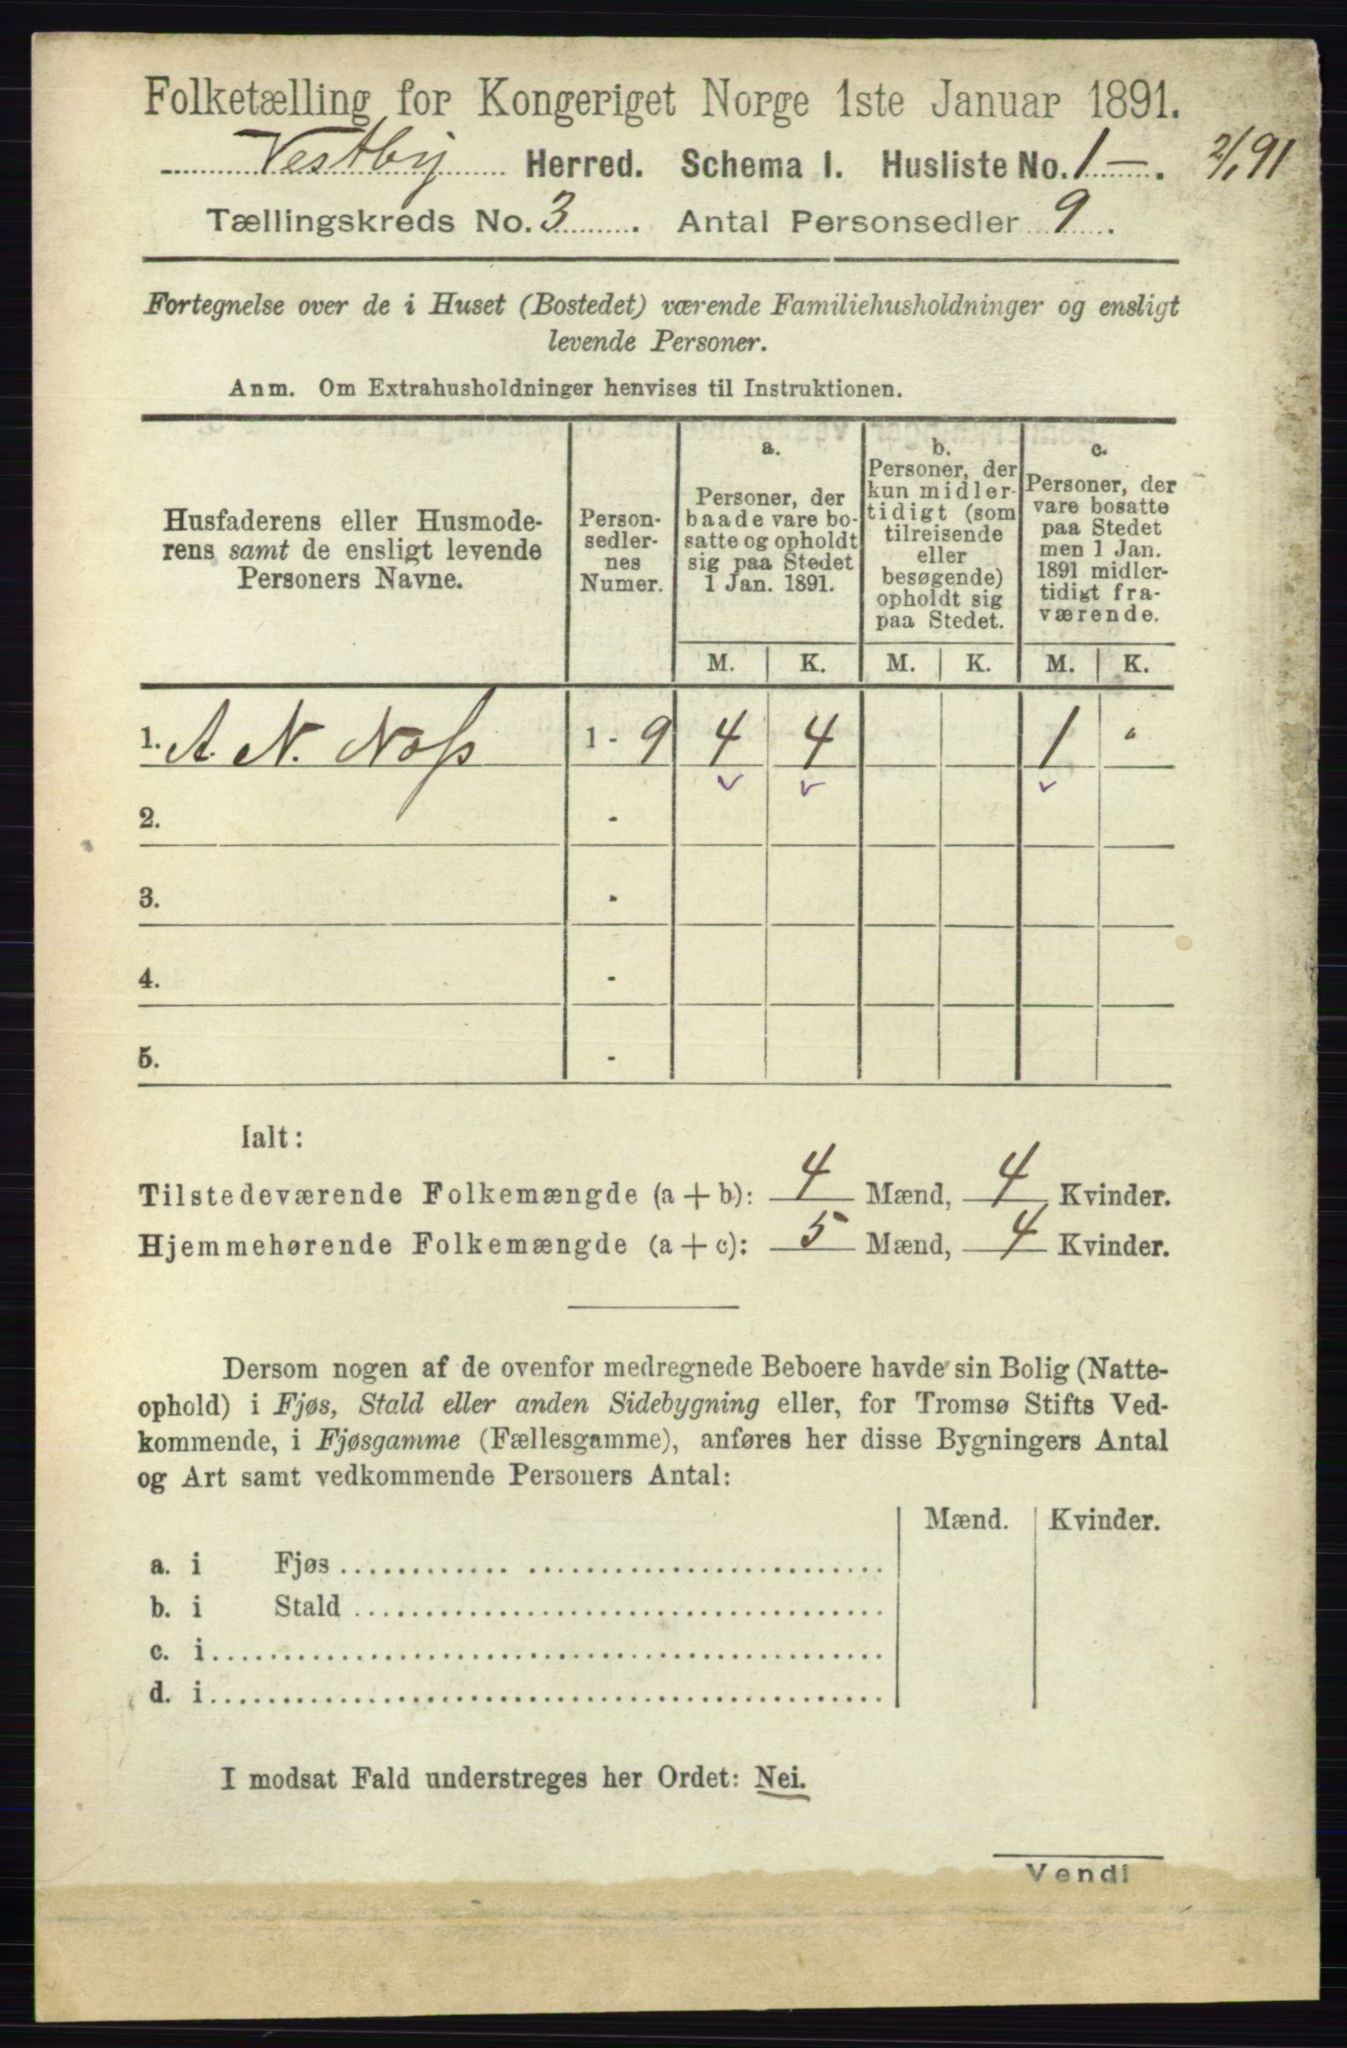 Folketælling for Kongeriget Norge 1ste Januar 1891.
Vestby Herred. Schema I. Husliste No. 1 —. 2/1 91
Tællingskreds No. 3. Antal Personsedler 9.
Fortegnelse over de i Huset (Bostedet) værende Familiehusholdninger og ensligt
levende Personer.
Anm. Om Extrahusholdninger henvises til Instruktionen.
Husfaderens eller Husmode-
rens samt de ensligt levende
Personers Navne.
Person-
sedler-
nes
Numer.
a.
Personer, der
baade vare bo-
satte og opholdt
sig paa Stedet
1 Jan. 1891.
b.
Personer, der
kun midler-
tidigt (som
tilreisende
eller
besøgende)
opholdt sig
paa Stedet.
c.
Personer, der
vare bosatte
paa Stedet
men 1 Jan.
1891 midler-
tidigt fra-
værende.
M. K. M. K. M. K.
1. A. N. Noss 1 - 9 4 4 1 "
2. -
3. -
4. -
5. -
Ialt:
Tilstedeværende Folkemængde (a + b): 4 Mænd, 4 Kvinder.
Hjemmehørende Folkemængde (a + c): 5 Mænd, 4 Kvinder.
Dersom nogen af de ovenfor medregnede Beboere havde sin Bolig (Natte-
ophold) i Fjøs, Stald eller anden Sidebygning eller, for Tromsø Stifts Ved-
kommende, i Fjøsgamme (Fællesgamme), anføres her disse Bygningers Antal
og Art samt vedkommende Personers Antal:
Mænd. Kvinder.
a. i Fjøs
b. i Stald
c. i
d. i
I modsat Fald understreges her Ordet: Nei.
Vend!